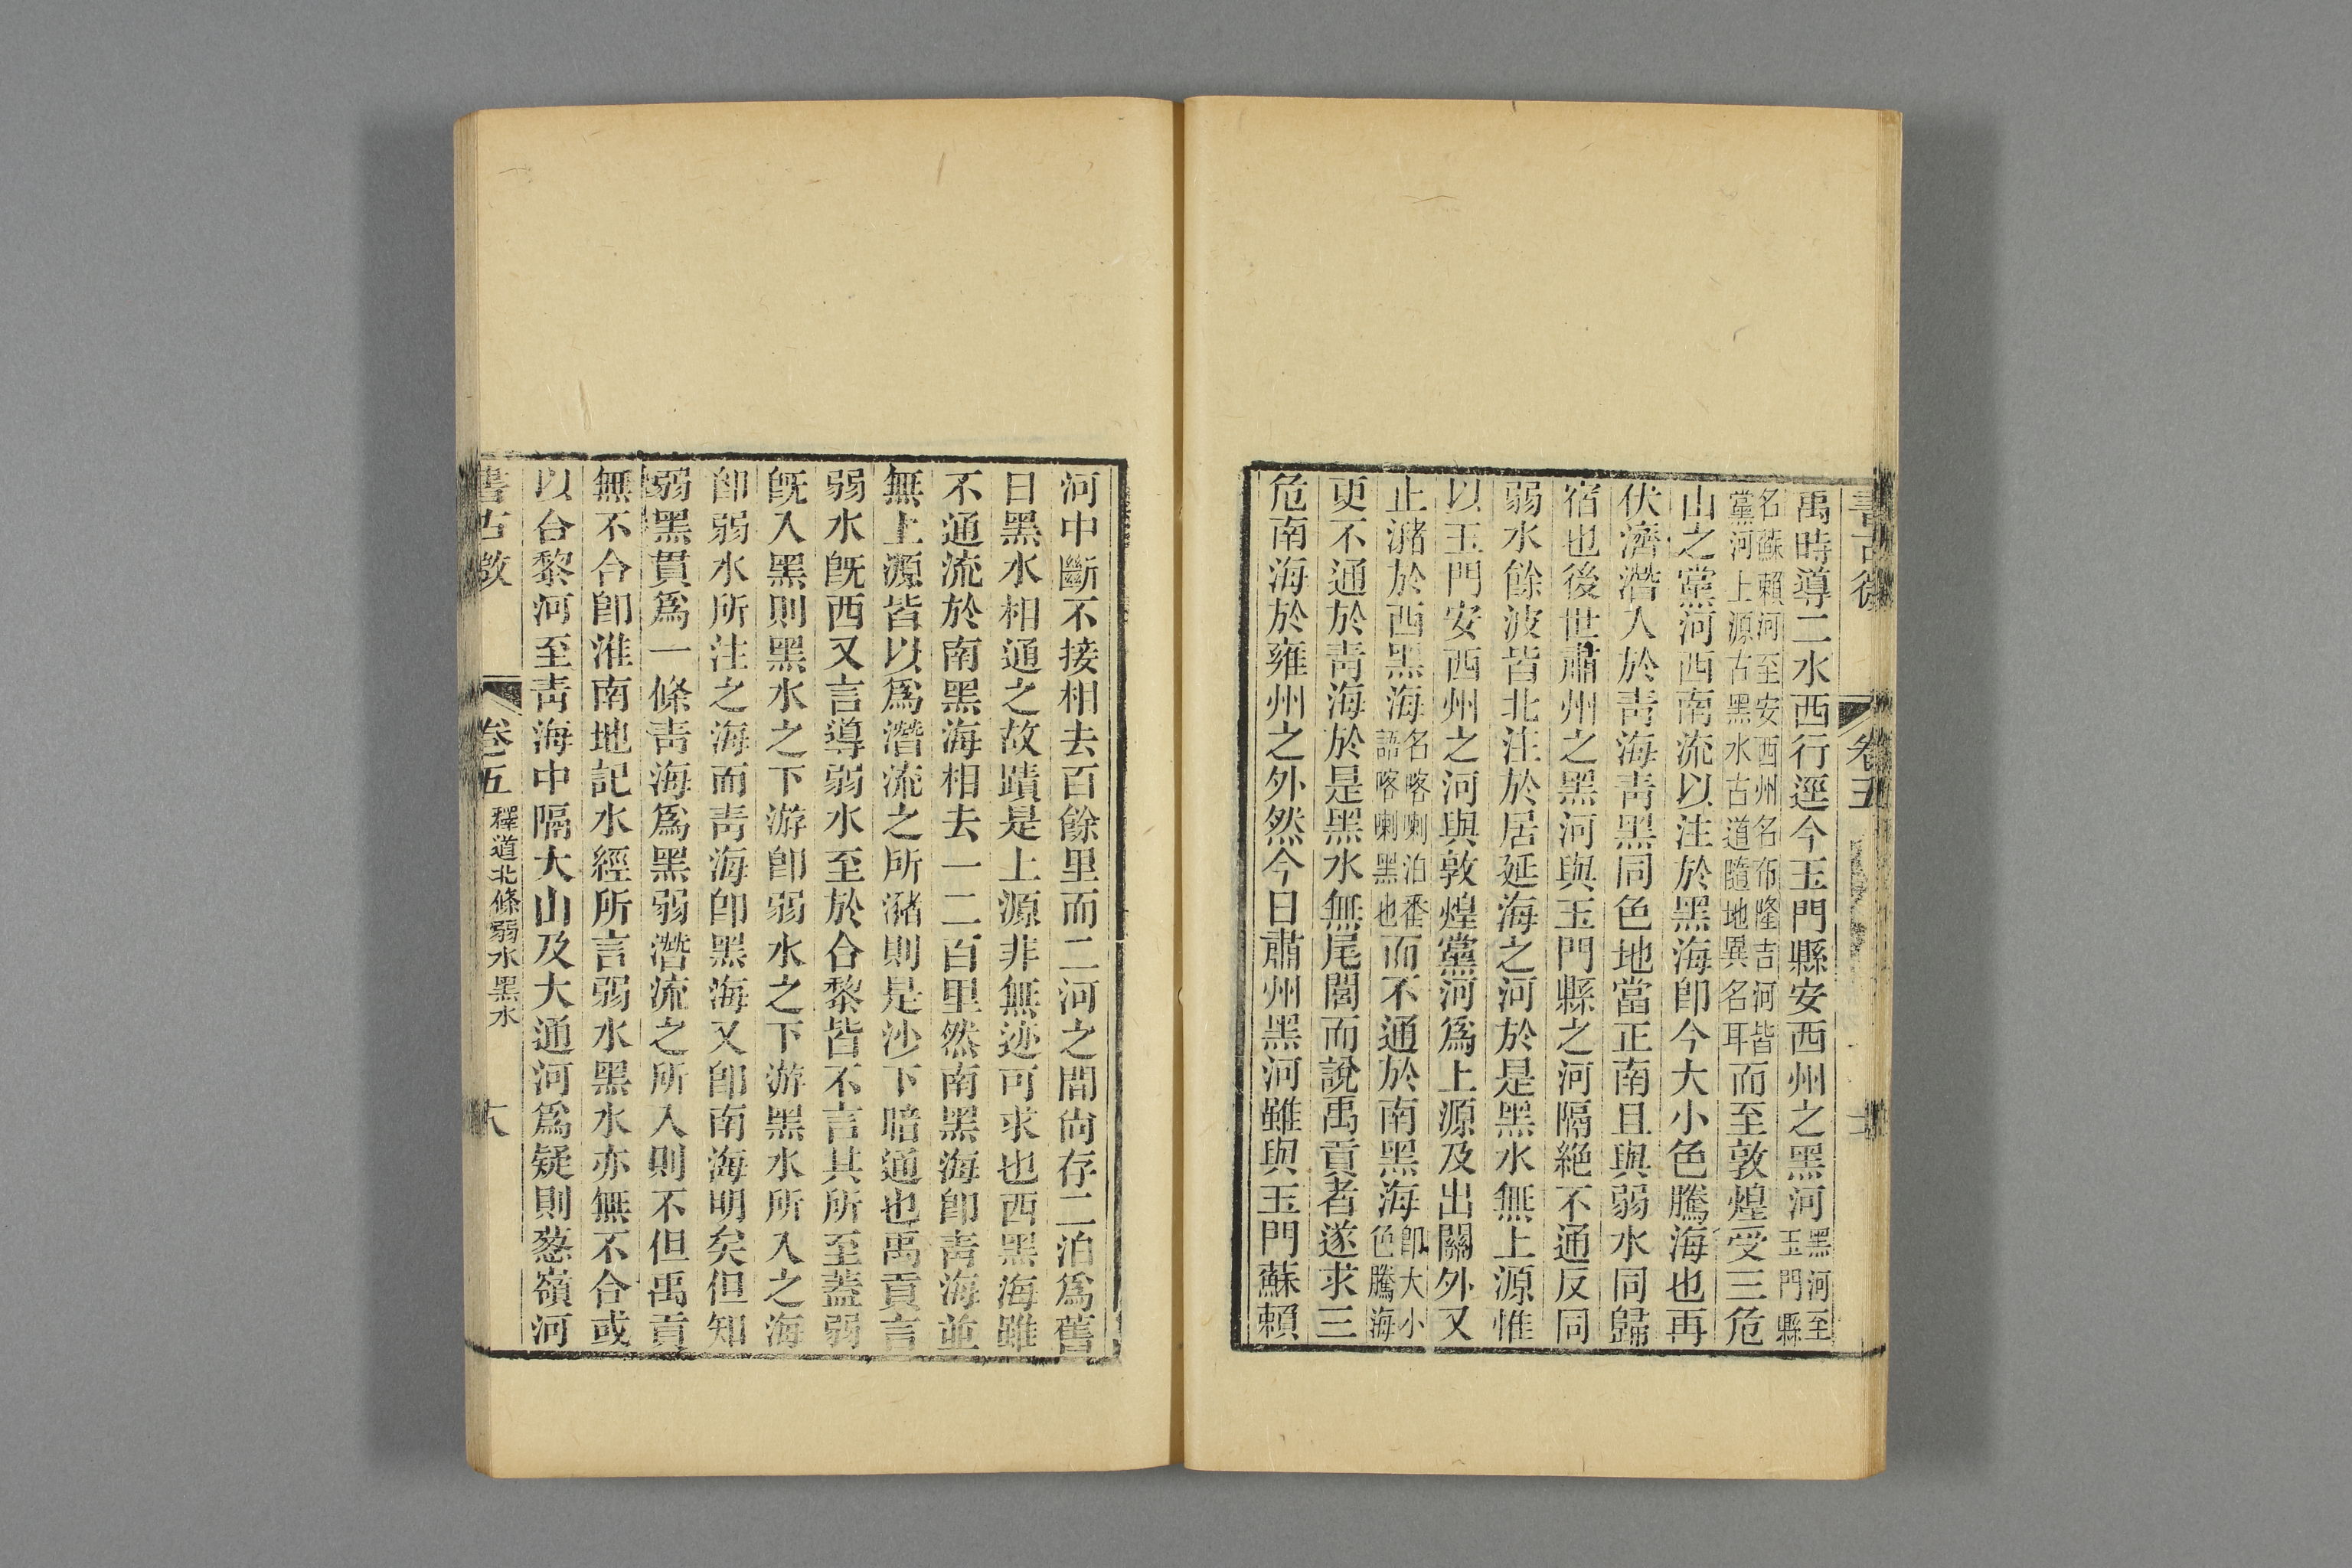 書古微
卷五
禹時導二水西行逕今玉門縣安西州之黑河黑河至玉門縣
名蘇賴河至安西州名布隆吉河皆黨河上源古黑水古道隨地異名耳而至敦煌受三危
山之黨河西南流以注於黑海卽今大小色騰海也再
伏濟潛入於靑海靑黑同色地當正南且與弱水同歸
宿也後世肅州之黑河與玉門縣之河隔絶不通反同
弱水餘波皆北注於居延海之河於是黑水無上源惟
以玉門安西州之河與敦煌黨河爲上源及出關外又
止瀦於西黑海名喀喇泊番語喀喇黑也而不通於南黑海卽大小色騰海
更不通於靑海於是黑水無尾閭而說禹貢者遂求三
危南海於雍州之外然今日肅州黑河雖與玉門蘇賴
河中斷不接相去百餘里而二河之間尙存二泊爲舊
日黑水相通之故蹟是上源非無迹可求也西黑海雖
不通流於南黑海相去一二百里然南黑海卽靑海並
無上源皆以爲潛流之所瀦則是沙下暗通也禹貢言
弱水旣西又言導弱水至於合黎皆不言其所至蓋弱
旣入黑則黑水之下游卽弱水之下游黑水所入之海
卽弱水所注之海而靑海卽黑海又卽南海明矣但知
弱黑貫爲一條靑海爲黑弱潛流之所入則不但禹貢
無不合卽淮南地記水經所言弱水黑水亦無不合或
以合黎河至靑海中隔大山及大通河爲疑則葱嶺河
書古微
卷五 釋道北條弱水黑水